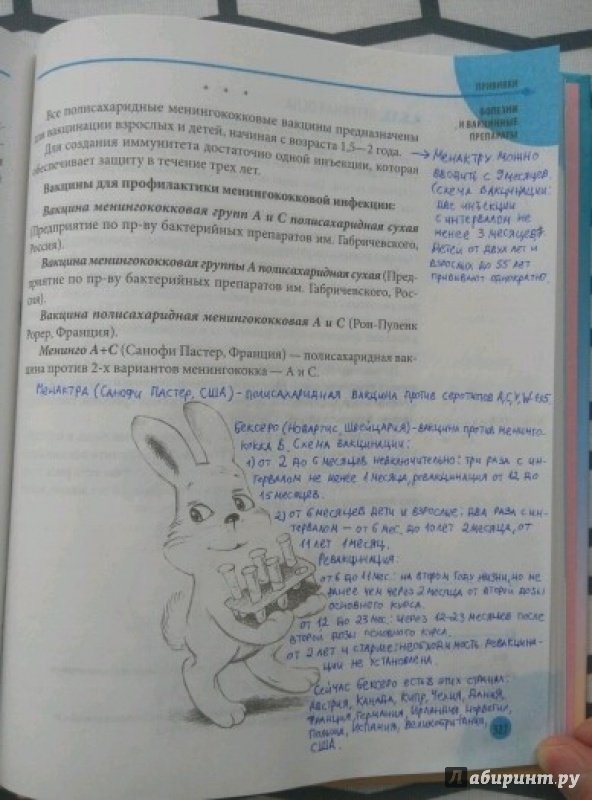 ПРИВИВКИ
БОЛЕЗНИ
И ВАКЦИННЫЕ
ПРЕПАРАТЫ
* * *
Все полисахаридные менингококковые вакцины предназначены
для вакцинации взрослых и детей, начиная с возраста 1,5—2 года.
Для создания иммунитета достаточно одной инъекции, которая
обеспечивает защиту в течение трех лет.
Вакцины для профилактики менингококковой инфекции:
Вакцина менингококковая групп А и С полисахаридная сухая
(Предприятие по пр-ву бактерийных препаратов им. Габричевского,
Россия).
Вакцина менингококковая группы А полисахаридная сухая (Пред-
приятие по пр-ву бактерийных препаратов им. Габричевского, Рос-
сия).
Вакцина полисахаридная менингококковая А и С (Рон-Пуленк
Рорер, Франция).
Менинго А+С (Санофи Пастер, Франция) — полисахаридная вак-
цина против 2-х вариантов менингококка — А и С.
→ Менактру можно
вводить с 9 месяцев
(схема вакцинации:
две инъекции
с интервалом не
менее 3 месяцев).
Детей от двух лет и
взрослых до 55 лет
прививают однократно.
Менактра (Санофи Пастер, США) - полисахаридная вакцина против серотипов A, C, Y, W-135
Бексеро (Новартис, Швейцария) - вакцина против менинго-
кокка B. Схема вакцинации:
1) от 2 до 5 месяцев невключительно: три раза с ин-
тервалом не менее 1 месяца, ревакцинация от 12 до
15 месяцев.
2) от 6 месяцев дети и взрослые: два раза с ин-
тервалом — от 6 мес. до 10 лет 2 месяца, от
11 лет 1 месяц.
Ревакцинация:
от 6 до 11 мес: на втором году жизни, но не
ранее чем через 2 месяца от второй дозы
основного курса.
от 12 до 23 мес: через 12-23 месяцев после
второй дозы основного курса.
от 2 лет и старше: необходимость ревакцина-
ции не установлена.
Сейчас бексеро есть в этих странах:
Австрия, Канада, Кипр, Чехия, Дания,
Франция, Германия, Ирландия, Норвегия,
Польша, Испания, Великобритания,
США.
Лабиринт.ру